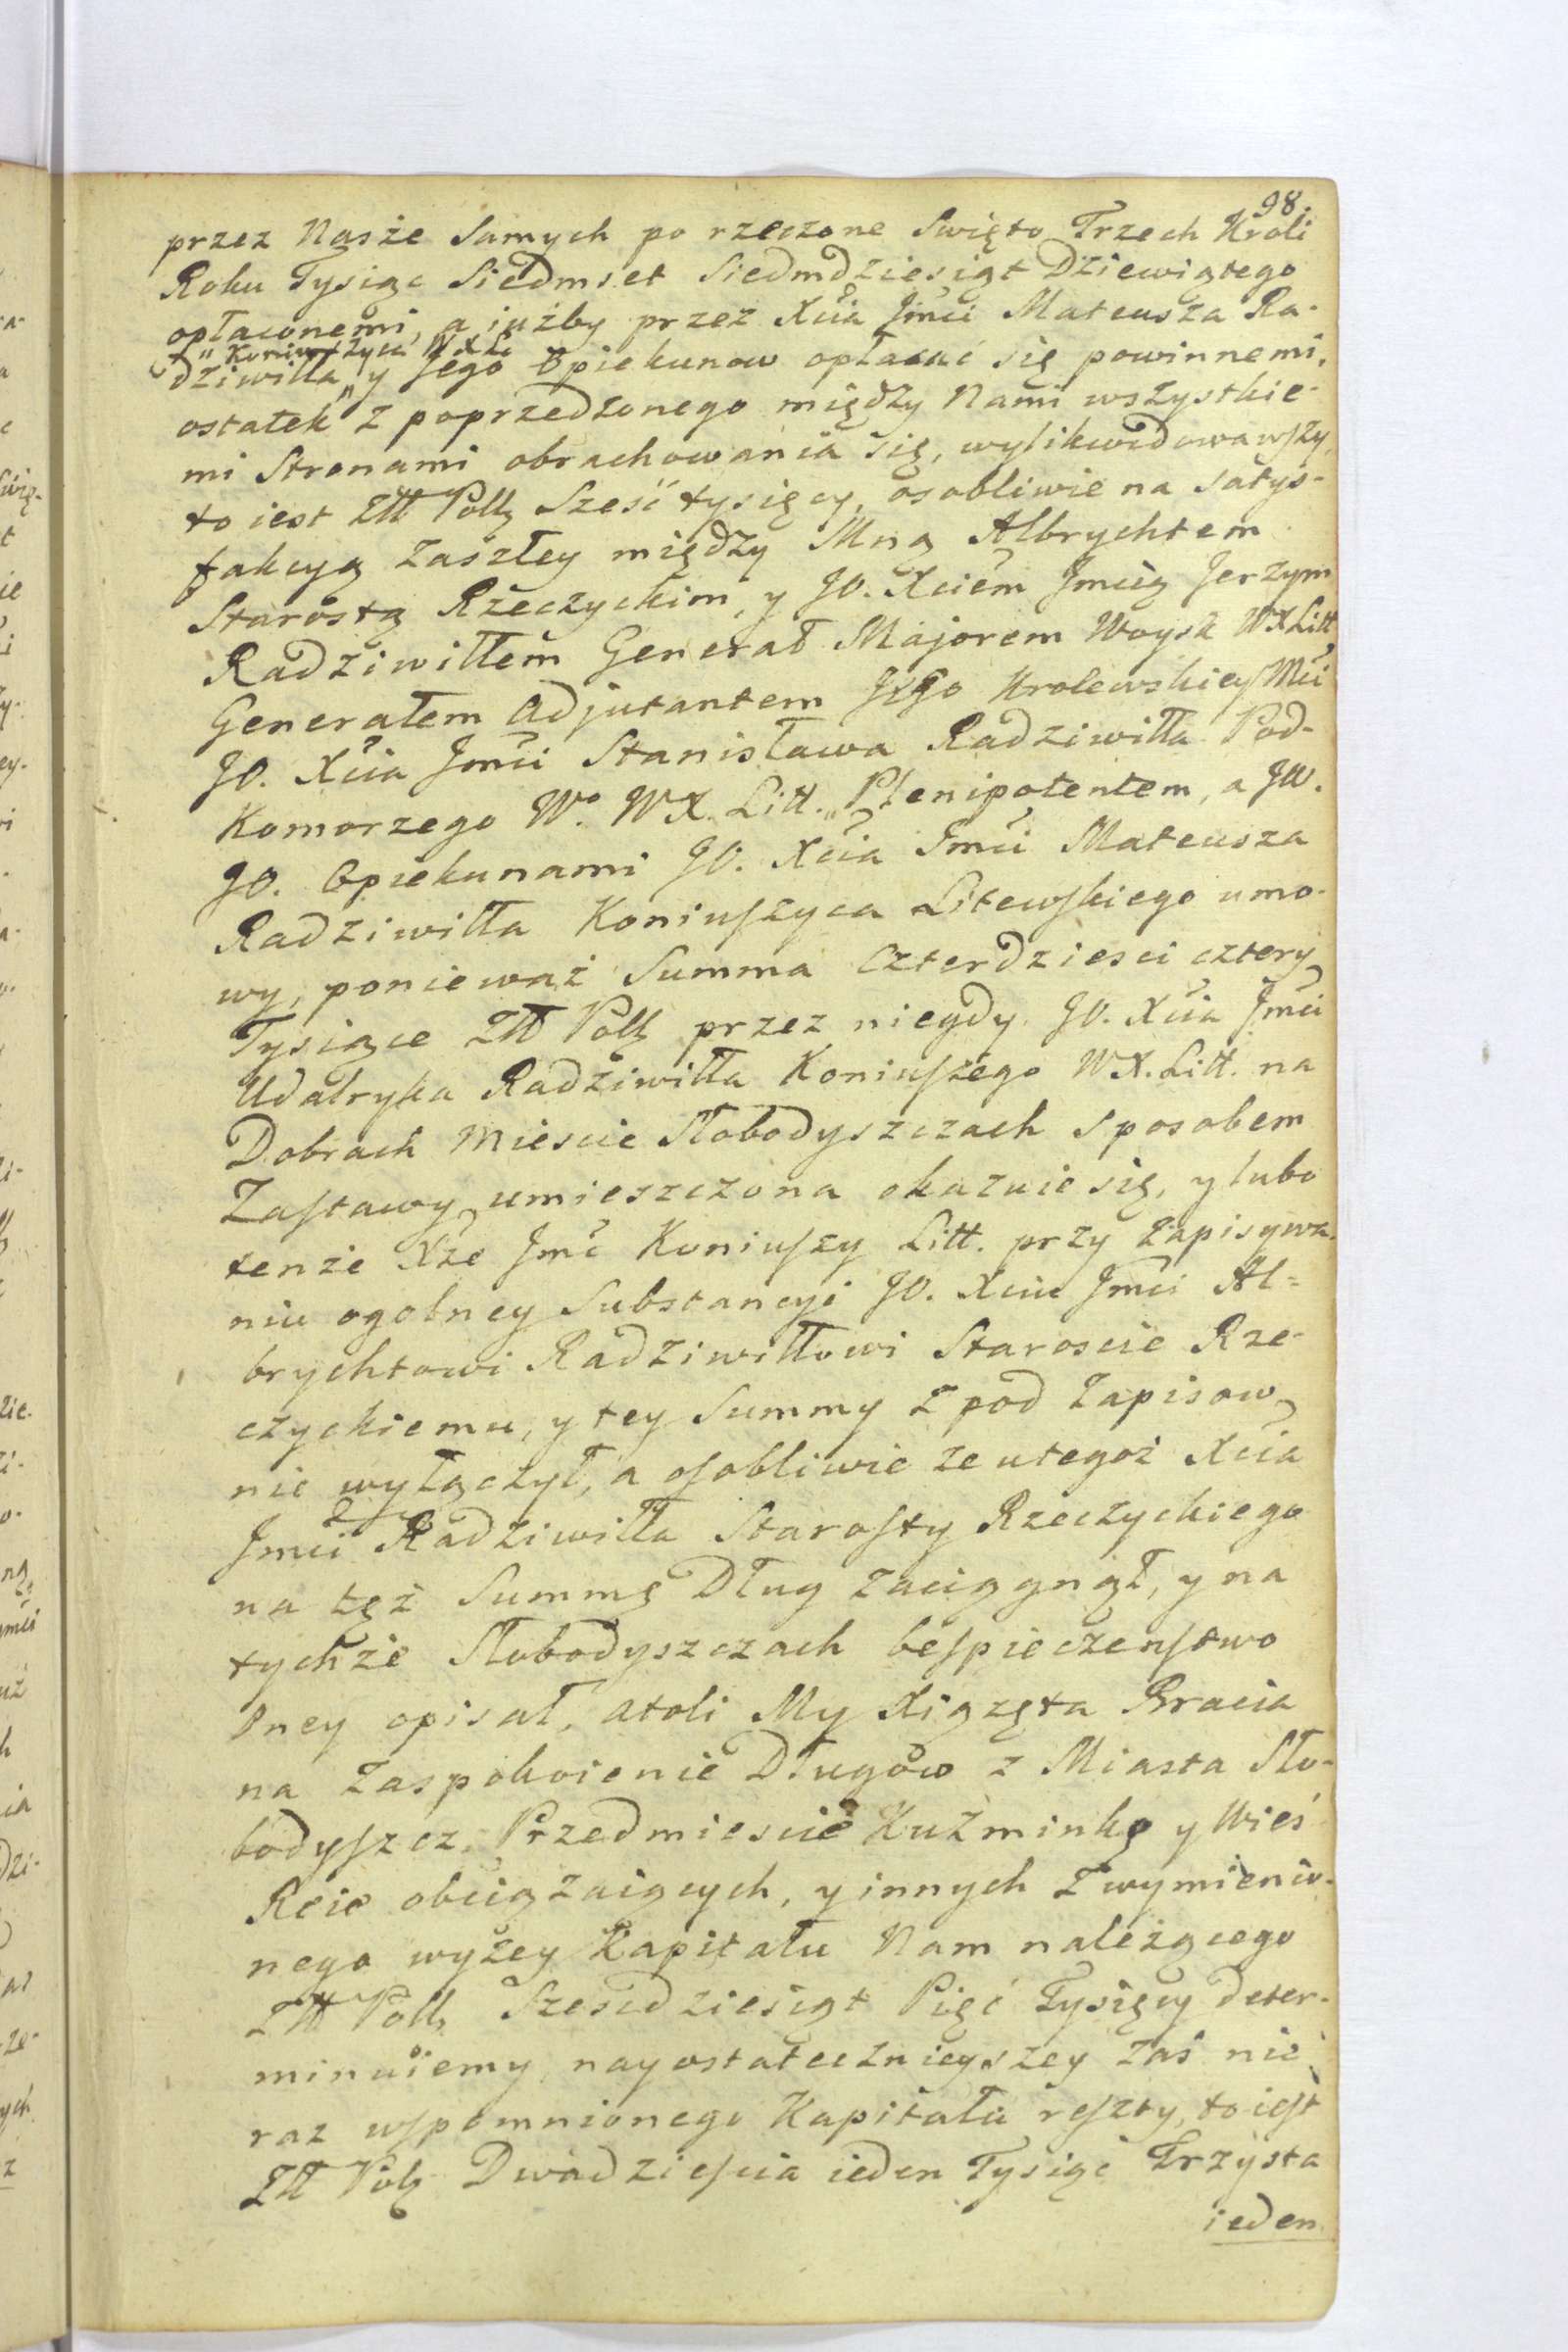 98.
przez Nasże Samych po rzeczone Swięto Trzech Kroli
Roku Tysiąc Siedmset Siedmdziesiąt Dziewiątego
opłaconemi, a iużby przez Xcia Jmci Mateusza Ra-
" Koniuszyca W X Li
dziwiłła " y Jego Opiekunow opłacać się powinnemi,
ostatek z poprzedzonego między Nami wszystkie-
mi Stronami obrachowania się, wylikwidowawszy,
to iest Złł Pollh Sześć tysięcy, osobliwie na satys-
fakcyą zaszłey między Mną Albrychtem
Starostą Rzeczyckim, y JO. Xciem Jmcią Jerzym
Radziwiłłem Generał Majorem Woysk WXLitt
Generałem Adjutantem JeGo Krolewskiey Mci
JO. Xcia Jmci Stanisława Radziwiłła Pod-
Komorzego Wo. WX. Litt. Plenipotentem, a JW.
JO. Opiekunami JO. Xcia Jmci Mateusza
Radziwiłła Koniuszyca Litewskiego umo-
wy, ponieważ Summa Czterdziesci cztery
Tysiące Złł Pollh przez niegdy JO. Xcia Jmci
Udalryka Radziwiłła Koniuszego WX. Litt. na
Dobrach Miescie Słobodyszczach sposobem
Zastawy umieszczona okazuie się, y lubo
tenże Xże Jmć Koniuszy Litt. przy zapisywa-
niu ogolney Substancyi JO. Xciu Jmci Al-
brychtowi Radziwiłłowi Staroscie Rze-
czyckiemu, y tey Summy z pod zapisow
nie wyłączył, a osobliwie że utegoż Xcia
Jmci Radziwiłła Starosty Rzeczyckiego
na tęż Summę Dług zaciągnął, y na
tychże Słobodyszczach bespieczenstwo
Oney opisał, atoli My Xiążęta Bracia
na zaspokoienie Długow z Miasta Sło-
bodyszcz, Przedmiescie Kuźminkę y Wieś
Reie obciązaiących, y innych z wymienio-
nego wyżey Kapitału Nam należącego
Złł Pollh Szescdziesiąt Pięć Tysięcy deter-
minuiemy, nayostatecznieyszey zaś nie
raz wspomnionego Kapitału reszty, to iest
Złł Polh Dwadziescia ieden Tysiąc Trzysta
ieden